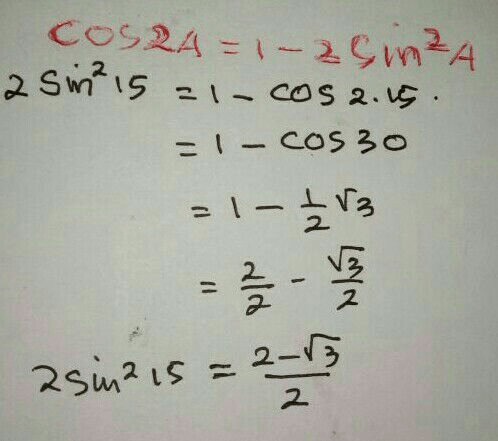 cos2A = 1 - 2 sin²A
2 sin² 15 = 1 - cos 2.15.
= 1 - cos 30
= 1 - 1/2 √3
= 2/2 - √3/2
2 sin² 15 = 2-√3/2